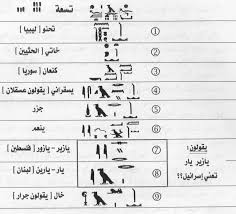 تسعة
① تحنو [ ليبيا ]
② خاتي [ الحثيين ]
③ كنعان [ سوريا ]
④ يسقراني [ يقولون عسقلان ]
⑤ جزر
⑥ ينعم
⑦ يازير - يازور [ فلسطين ]
⑧ يار - يارين [ لبنان ]
يقولون:
يازير يار
تعني إسرائيل؟؟
⑨ خال [ يقولون جرار ]